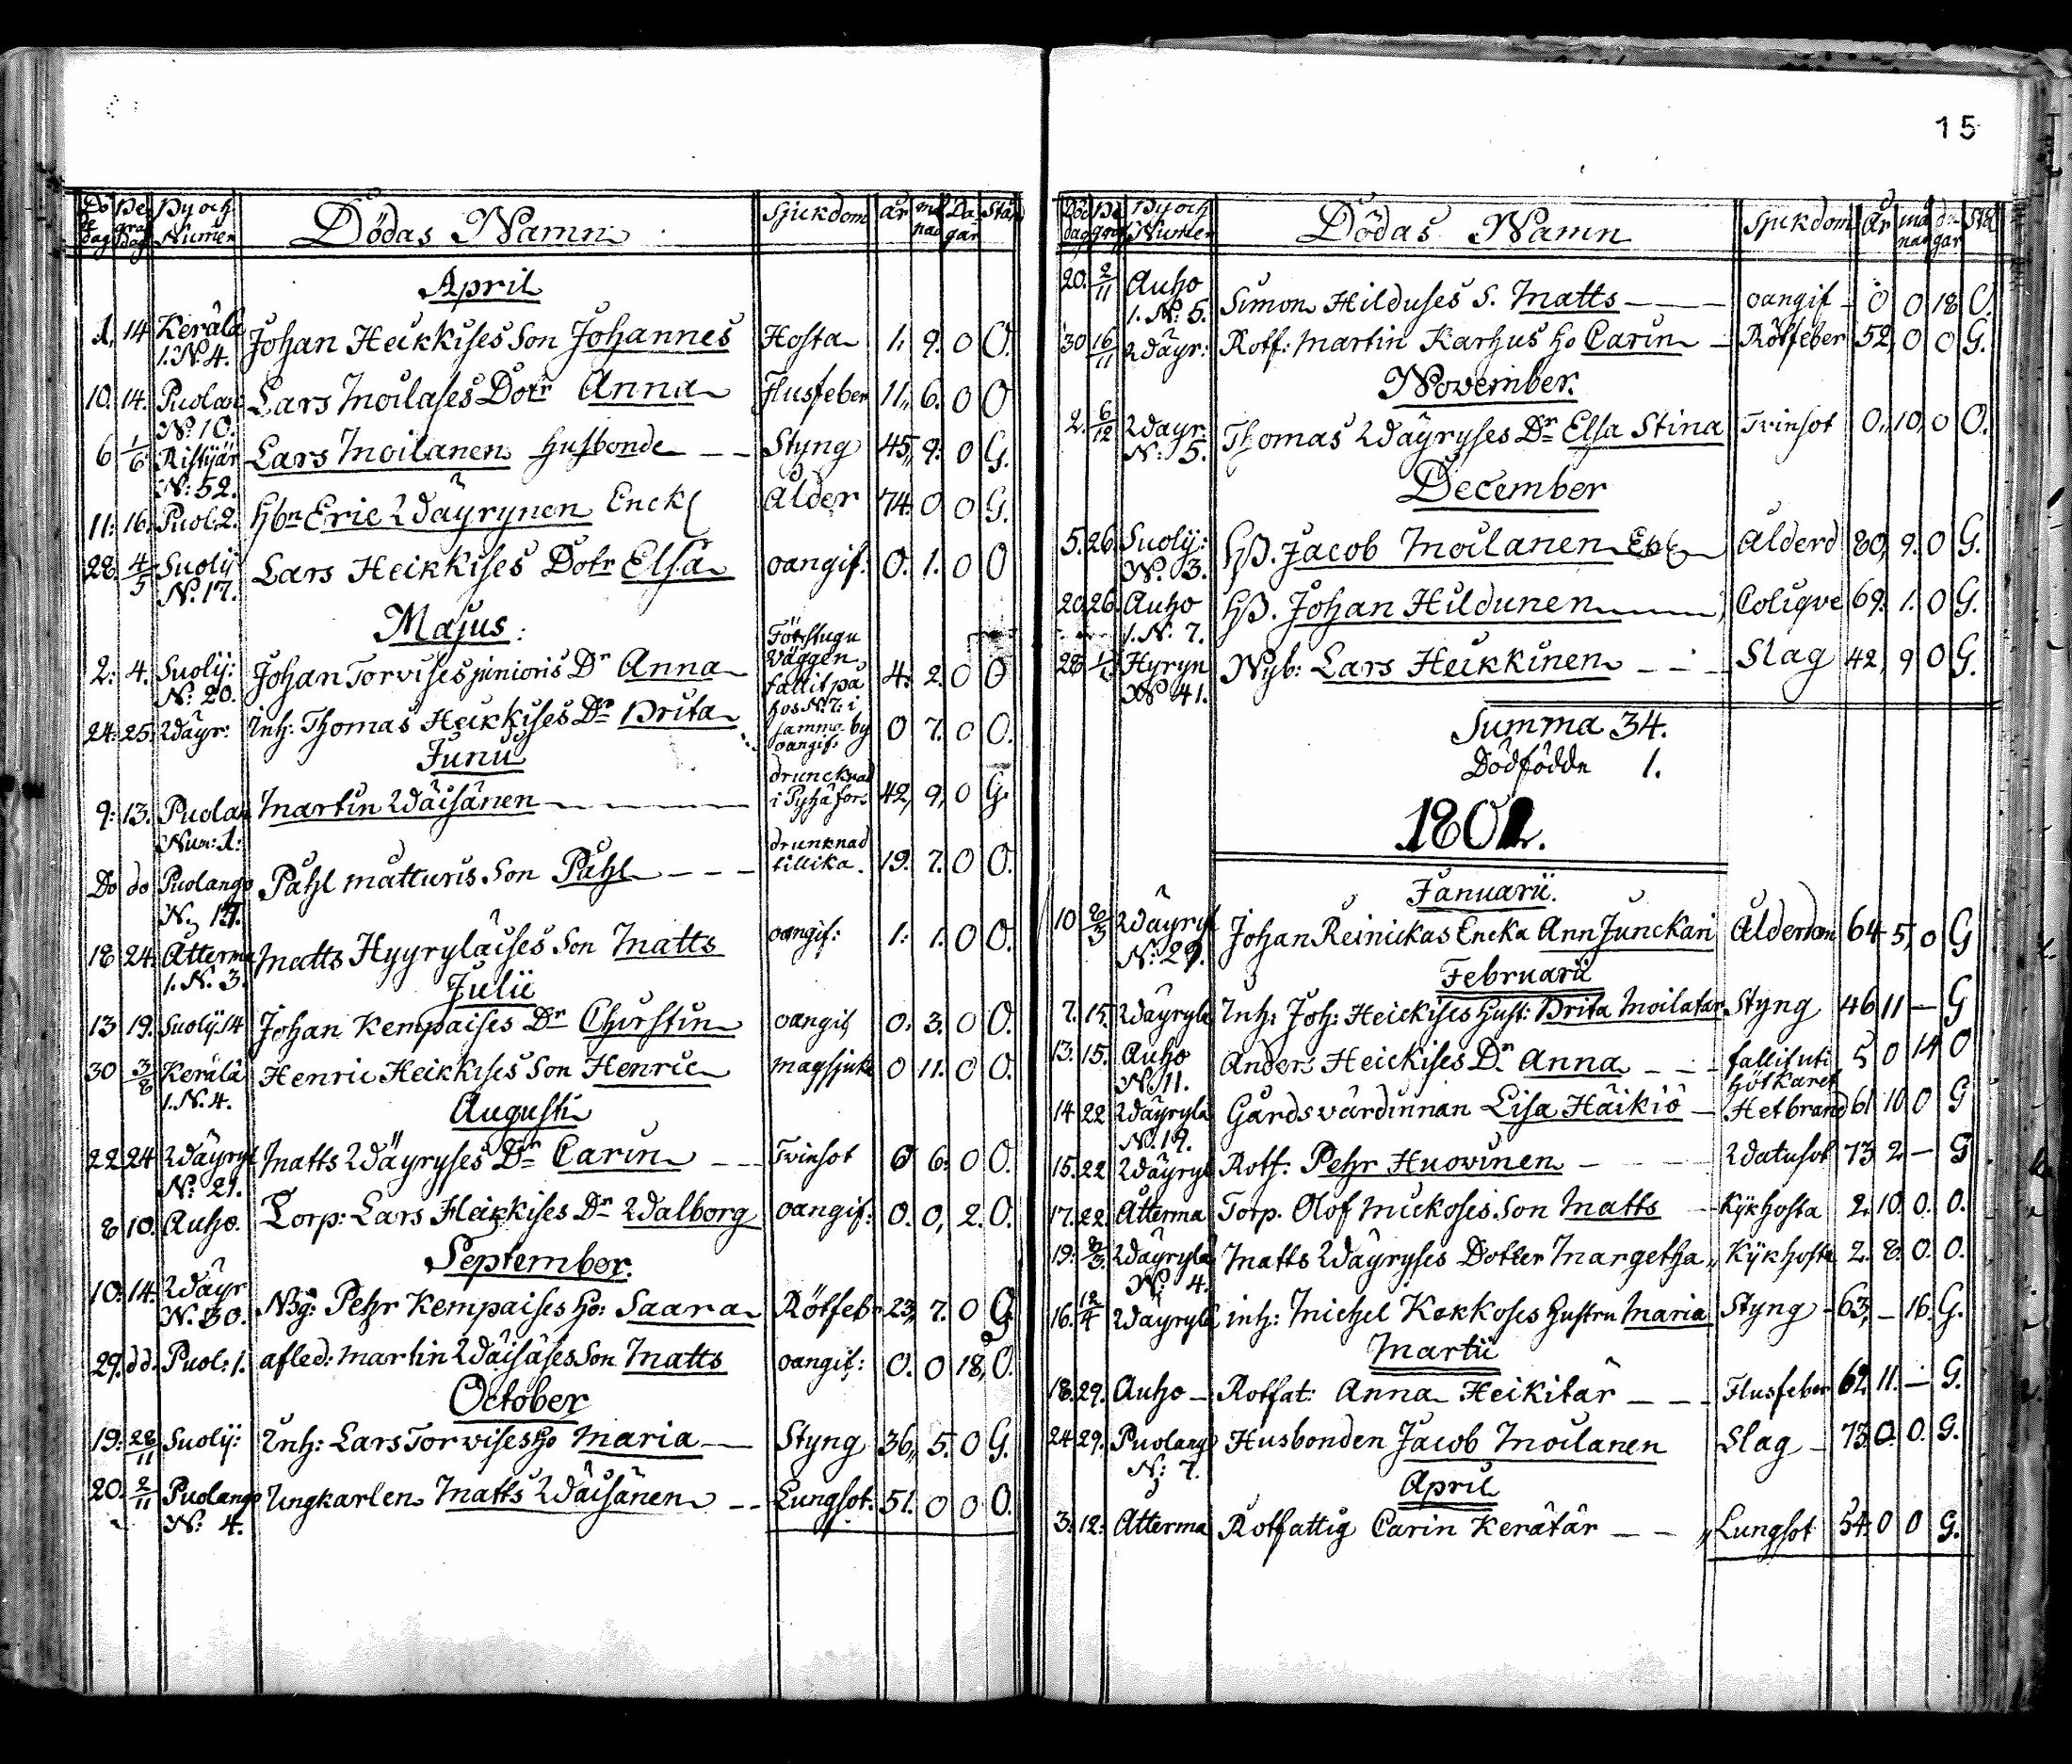 15
Dö de dag Be gra dag By och Numer Dödas Namn Sjukdom år må nad Da gar Stånd
April
1. 14 Kerälä 1. N. 4. Johan Heikkises Son Johannes Hosta 1. 9. 0 O.
10. 14. Puolan N. 10. Lars Moilases Dotr Anna Flusfeber 11. 6. 0 O
6 1/6 Ristijär N: 52. Lars Moilanen Husbonde Styng 45, 9. 0 G.
11. 16. Puol: 2. Hbn Eric Wäyrynen Enckl Ålder 74. 0 0 G.
28. 4/5 Suolij N. 17. Lars Heikkises Dotr Elsa oangif: 0. 1. 0 O
Majus:
2. 4. Suolij: N: 20. Johan Torvises junioris Dr Anna Förstugu väggen fallit på hos N. 7. i samma by 4. 2. 0 O
24. 25. Wäyr: Inh: Thomas Heikkises Dr Brita oangif: 0 7. 0 O.
Junii
9. 13. Puolan Num: 1: Martin Wäisänen druncknad i Pyhäfors 42, 9, 0 G.
Do do Puolango N. 17. Påhl Matturis Son Påhl drunknad tillika. 19. 7. 0 O.
18 24. Atterma 1. N. 3. Matts Hyyryläises Son Matts oangif: 1. 1. 0 O.
Julii
13 19. Suolij 14 Johan Kempaises Dr Christin oangif 0. 3. 0 O.
30 3/8 Kerälä 1. N. 4. Henric Heikkises Son Henric magsjuka 0 11. 0 O.
Augusti
22 24 Wäyryl N: 21. Matts Wäyryses Dr Carin Tvinsot 0 6. 0 O.
8 10. Auho. Torp: Lars Heikkises Dr Walborg oangif: 0. 0, 2. O.
September.
10. 14. Wäyr N. 30. Nbg: Pehr Kempaises Ho: Saara Rötfebr 23, 7. 0 G
29. dd. Puol: 1. afled: Martin Wäisäses Son Matts oangif: 0. 0 18, O.
October
19. 28/11 Suolij: Inh: Lars Torvises Ho Maria Styng 36, 5. 0 G.
20. 2/11 Puolango N: 4. Ungkarlen Matts Wäisänen Lungsot. 51. 0 0 O.
Död dag Be gra By och Numer Dödas Namn Sjukdom År må nad da gar Stå
20. 2/11 Auho 1. N: 5. Simon Hilduses S. Matts oangif 0 0 18 O.
30 16/11 Wäyr: Rotf: Martin Karhus Ho Carin Rötfeber 52, 0 0 G.
November.
2. 6/12 Wäyr. N: 5. Thomas Wäyryses Dr Elsa Stina Tvinsot 0. 10, 0 O.
December
5. 26. Suolij: N. 3. HB. Jacob Moilanen Ålderd 80, 9. 0 G.
20. 26. Auho 1. N. 7. HB. Johan Hildunen Colique 69. 1. 0 G.
28 Hyryn N 41. Nyb: Lars Heikkinen Slag 42, 9 0 G.
Summa 34.
Dödfödde 1.
1802.
Januarii.
10 Wäyryl N: 29. Johan Reinickas Encka Ann Junckari Ålderdom 64 5, 0 G
Februarii
7. 15. Wäyrylä Inh: Joh: Heickises Hust: Brita Moilatar Styng 46 11 — G
13. 15. Auho N. 11. Anders Heickises Dr Anna fallit uti hötkaret 5 0 14 O
14 22 Wäyrylä N: 19. Gårdsvärdinnan Lisa Häikiö Hetbrand 61 10 0 G
15. 22 Wäyryl Rotf: Pehr Huovinen Watusot 73 2 — G
17. 22. Atterma Torp. Olof Mickosis Son Matts Kikhosta 2. 10. 0. O.
19. Wäyrylä N: 4. Matts Wäyryses Dotter Margetha Kikhosta 2. 8. 0. O.
16. 12/4 Wäyrylä inh: Michel Kokkoses hustru Maria Styng 63, — 16. G.
Martii
18. 29. Auho Rotfat: Anna Heikitär Flusfeber 62. 11. — G.
24 29. Puolango N: 7. Husbonden Jacob Moilanen Slag 73. 0. 0. G.
April
3. 12. Atterma Rotfattig Carin Kerätär Lungsot 54. 0 0 G.